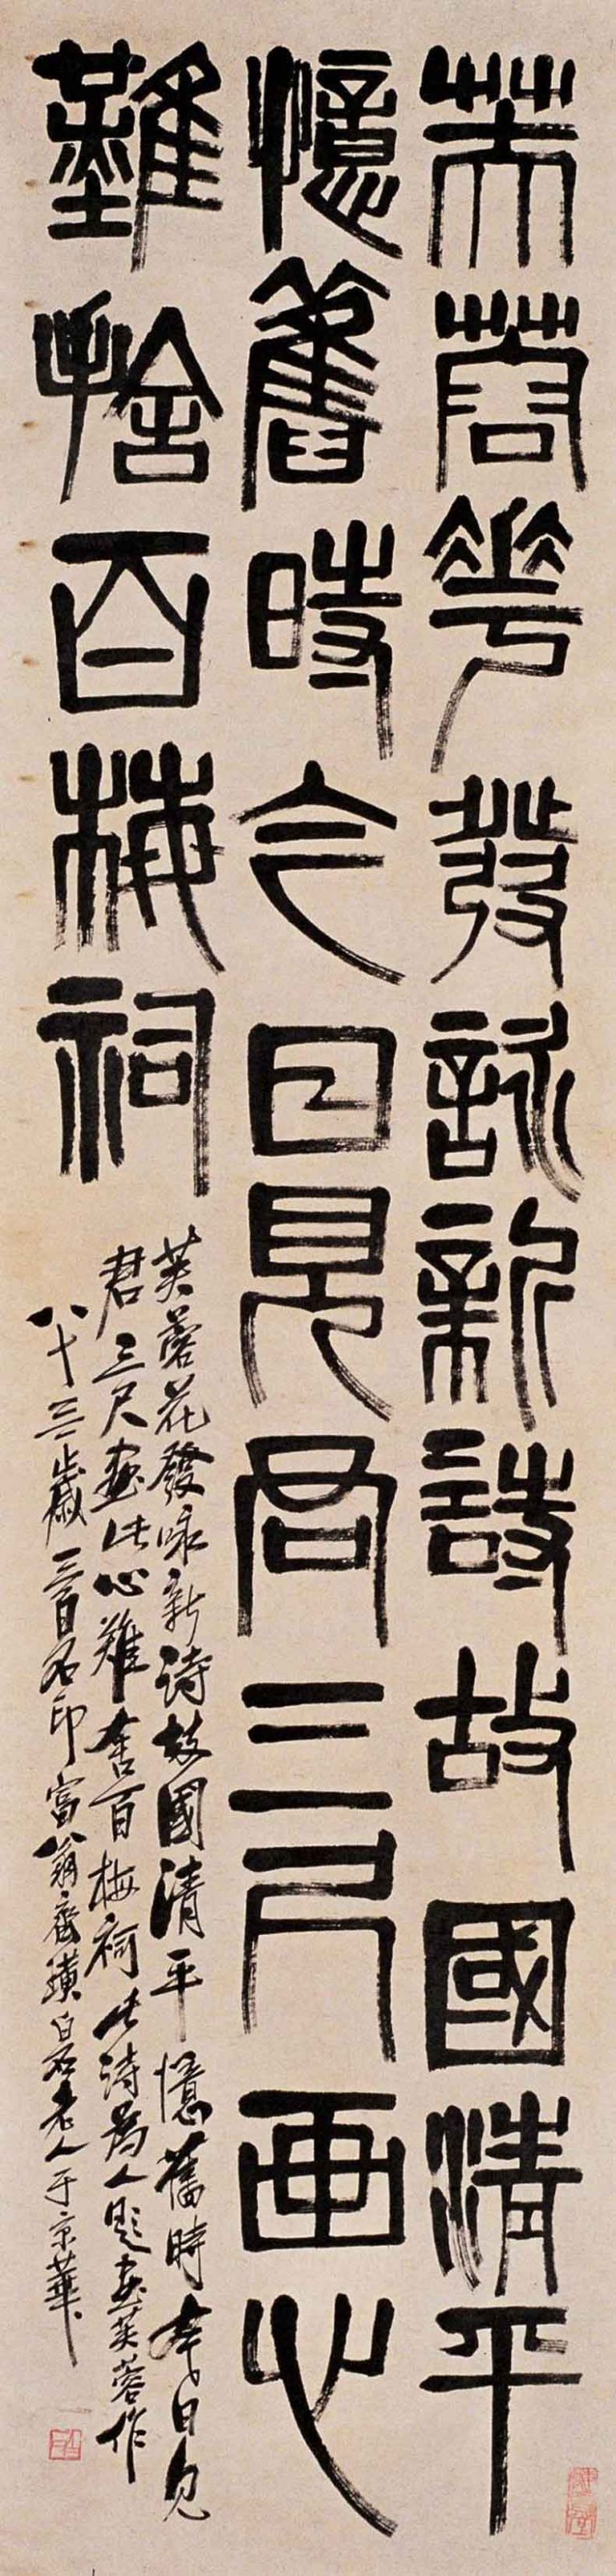 芙蓉華發詠新詩故國清平
憶舊時今日見君三尺画心
難捨百梅祠
芙蓉花發咏新詩故國清平憶舊時今日見
君三尺畫此心難舍百梅祠此詩為人題畫芙蓉作
八十三歲三百石印富翁齊璜白石老人于京華